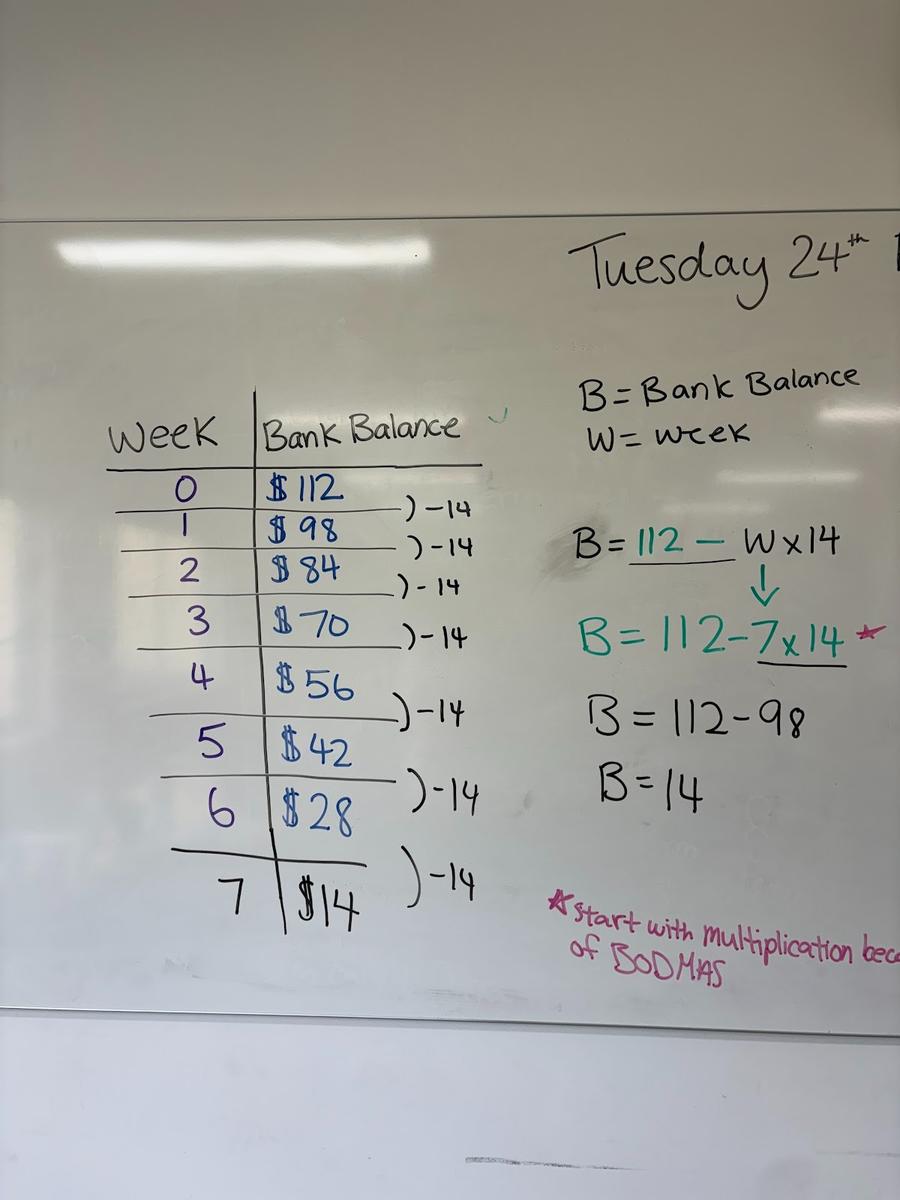 Tuesday 24th
Week Bank Balance
0 $112
) -14
1 $98
) -14
2 $84
) -14
3 $70
) -14
4 $56
) -14
5 $42
) -14
6 $28
) -14
7 $14
B = Bank Balance
W = week
B = 112 - W x 14
B = 112 - 7 x 14 *
B = 112 - 98
B = 14
* start with multiplication
of BODMAS